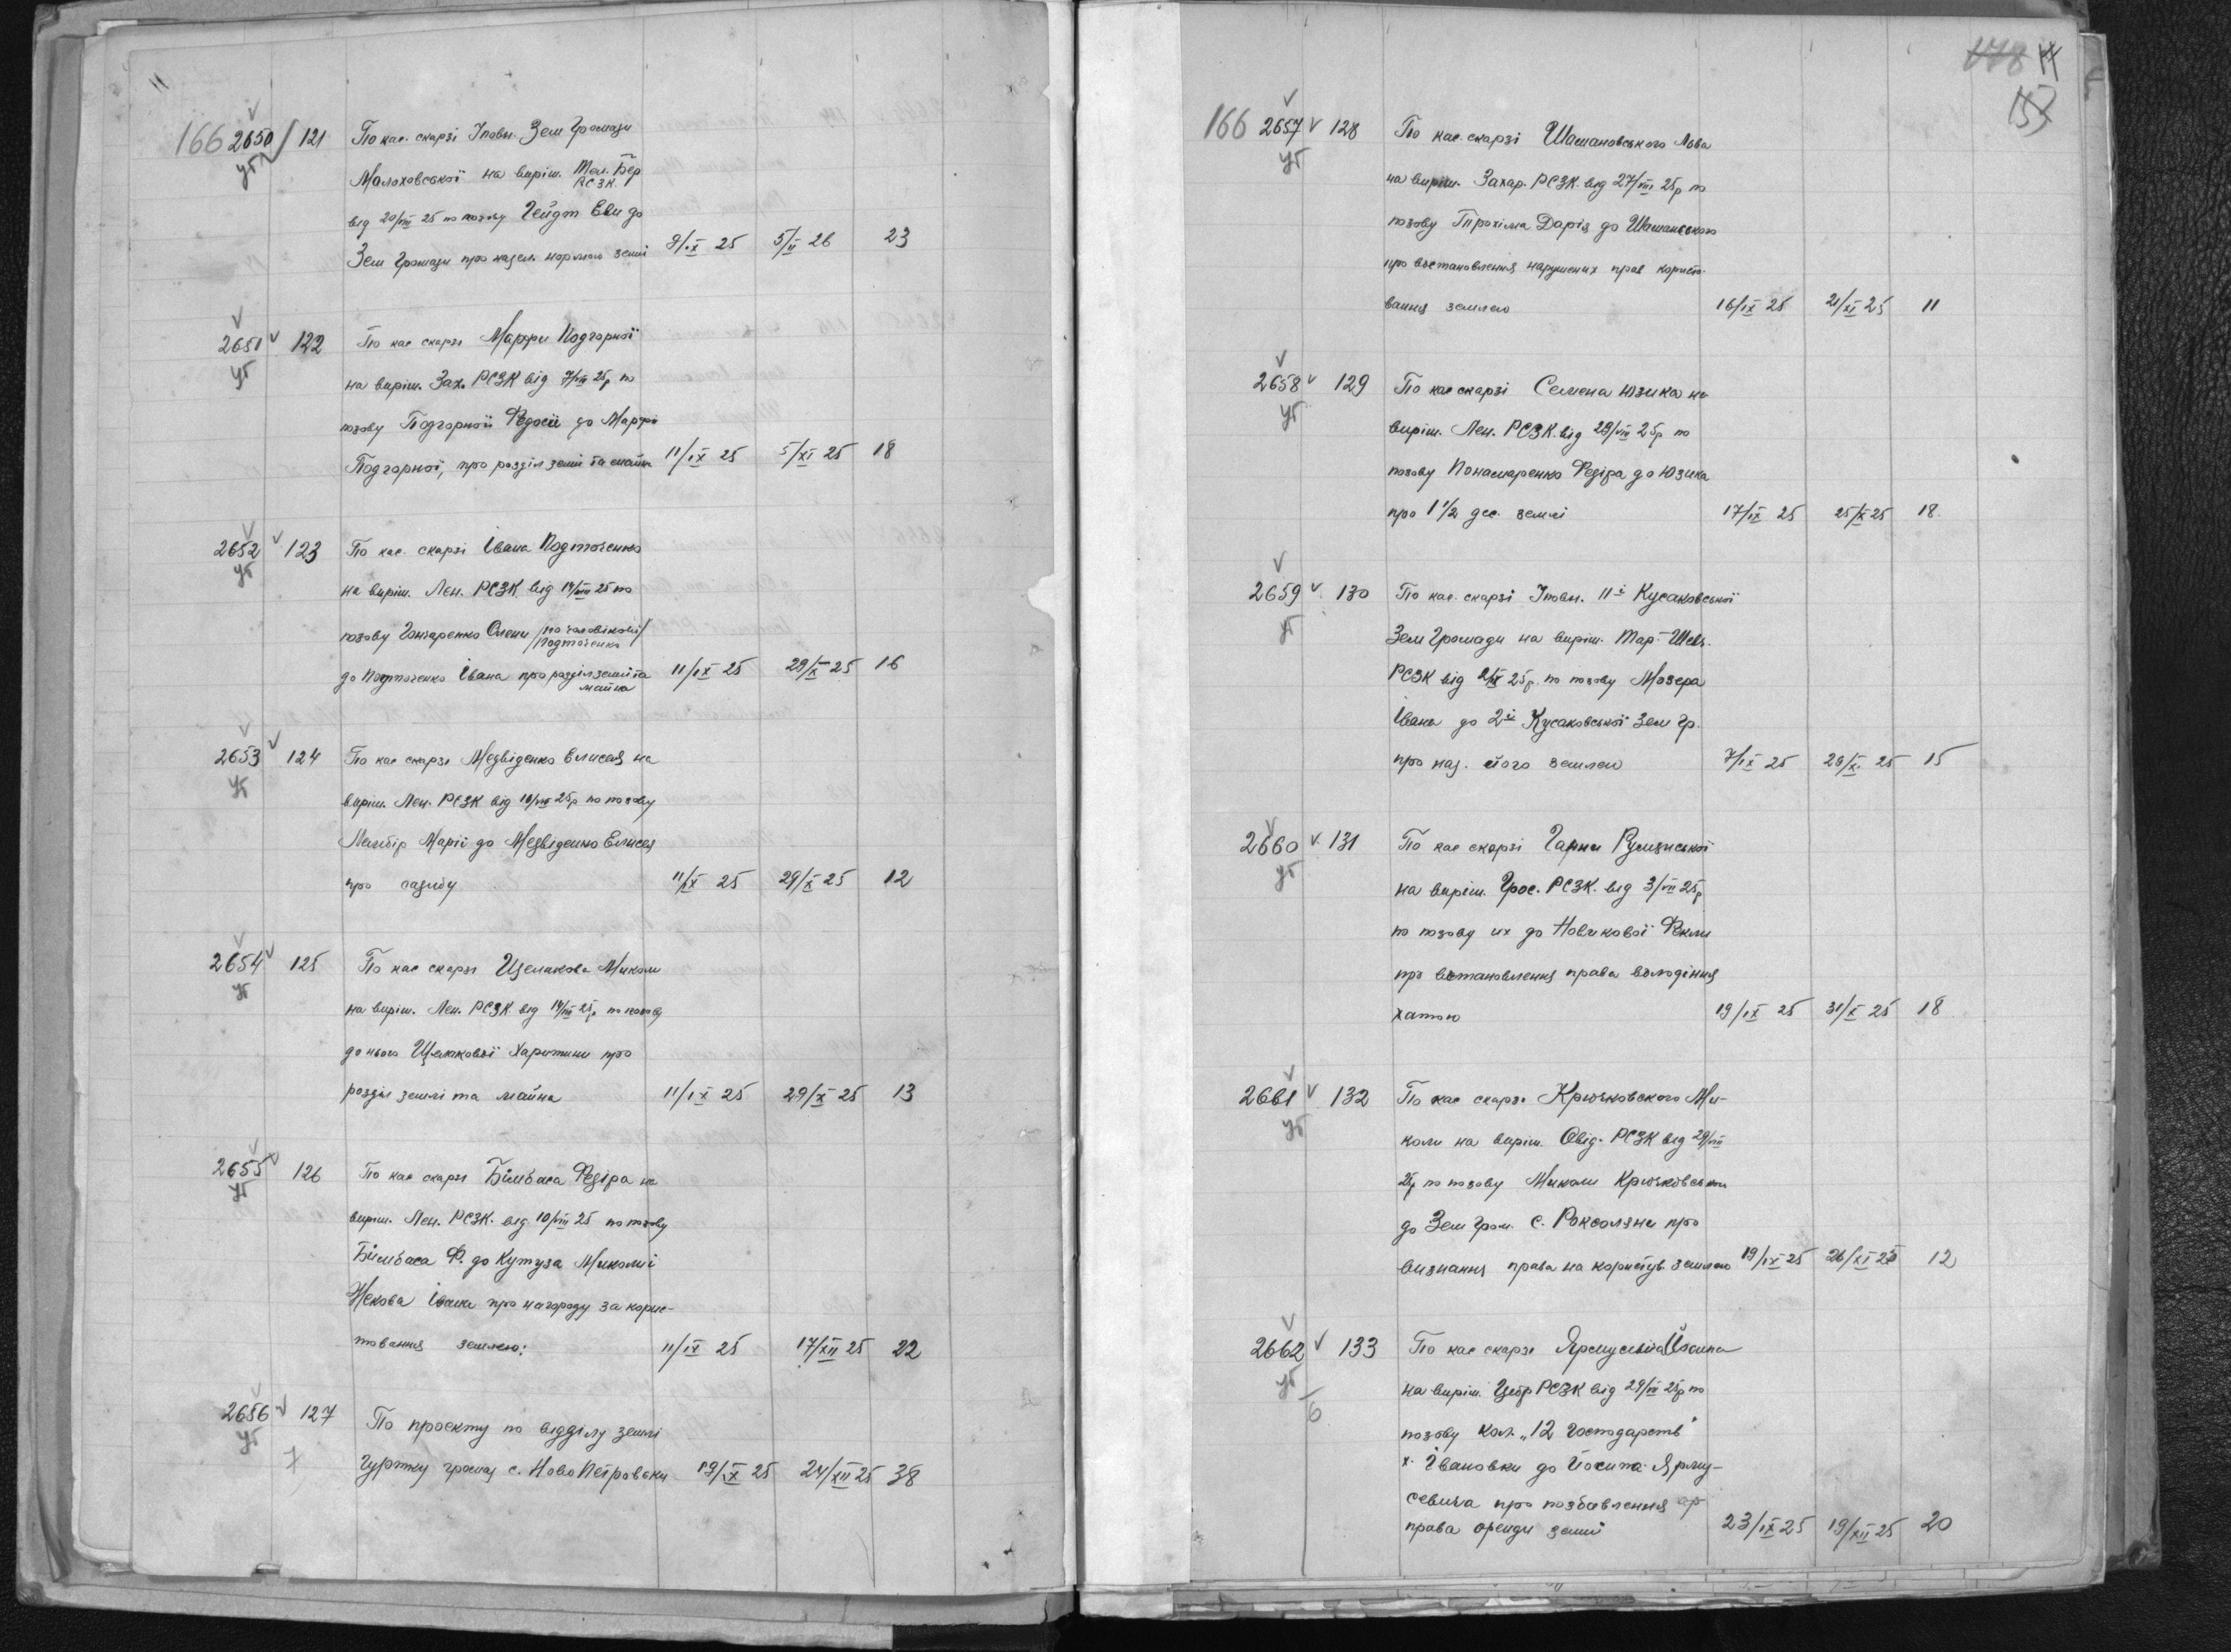 166 2650 121 По кас. скарзі Уповн. Зем Громади
Малоховської на виріш. Тел. Бер
РСЗК.
від 20/VIII 25 по позову Гейдт Еви до
Зем Громади про наділ. нормою землі 9/IX 25 5/II 26 23
2651 122 По кас скарзі Марфи Подгорної
на виріш. Зах. РСЗК від 7/VIII 25р по
позову Подгорної Федосії до Марфи
Подгорної, про розділ землі та майна 11/IX 25 5/XI 25 18
2652 123 По кас. скарзі Івана Подточенко
на виріш. Лен. РСЗК від 14/VIII 25 по
позову Гончаренко Олени /по чоловікові/
/Подточенко
до Подточенко Івана про розділ землі та 11/IX 25 29/X 25 16
майна
2653 124 По кас скарзі Медвіденко Елисея на
виріш. Лен. РСЗК від 18/VIII 25р по позову
Марії до Медвіденко Елисея
про садибу 11/IX 25 29/X 25 12
2654 125 По кас скарзі Щелакова Миколи
на виріш. Лен. РСЗК від 14/VIII 25р по позову
до нього Щелакової Харитини про
розділ землі та майна 11/IX 25 29/X 25 13
2655 126 По кас скарзі Бімбаса Федіра на
виріш. Лен. РСЗК. від 10/VIII 25 по позову
Бімбаса Ф. до Кутуза Миколи і
Жекова Івана про нагороду за корис-
товання землею: 11/IX 25 17/XII 25 22
2656 127 По проекту по відділу землі
Гуртку громад с. Ново Петровки 19/IX 25 24/XII 25 38
178
166 2657 128 По кас. скарзі Шашановського Льва
на виріш. Захар. РСЗК. від 27/VIII 25р по
позову Прохіма Дарія до Шашановського
про востановлення нарушених прав користо-
вання землею 16/IX 25 21/XI 25 11
2658 129 По кас скарзі Семена Юзика на
виріш. Лен. РСЗК. від 29/VIII 25р по
позову Понамаренко Федіра до Юзика
про 1 1/2 дес. землі 17/IX 25 25/X 25 18
2659 130 По кас. скарзі Уповн. ІІ-ї Кусаковської
Зем Громади на виріш. Тар-Шевч.
РСЗК від 2/IX 25р. по позову Мозера
Івана до 2ї Кусаковської Зем гр.
про над. його землею 7/IX 25 29/X 25 15
2660 131 По кас скарзі Ганни Румянської
на виріш. Грос. РСЗК. від 3/VII 25р
по позову их до Новикової Фекли
про востановлення права володіння
хатою 19/IX 25 31/X 25 18
2661 132 По кас скарзі Крючковского Ми-
коли на виріш. Овід. РСЗК від 29/VIII
25р по позову Миколи Крючковського
до Зем Гром. с. Роксоляни про
визнання права на користув. землею 19/IX 25 26/XI 25 12
2662 133 По кас скарзі Ярмусевича Йосипа
на виріш. Цебр РСЗК від 29/VII 25р по
позову кол. „12 Господарств"
х. Івановки до Йосипа Ярму-
севича про позбавлення
права оренди землі 23/IX 25 19/XII 25 20